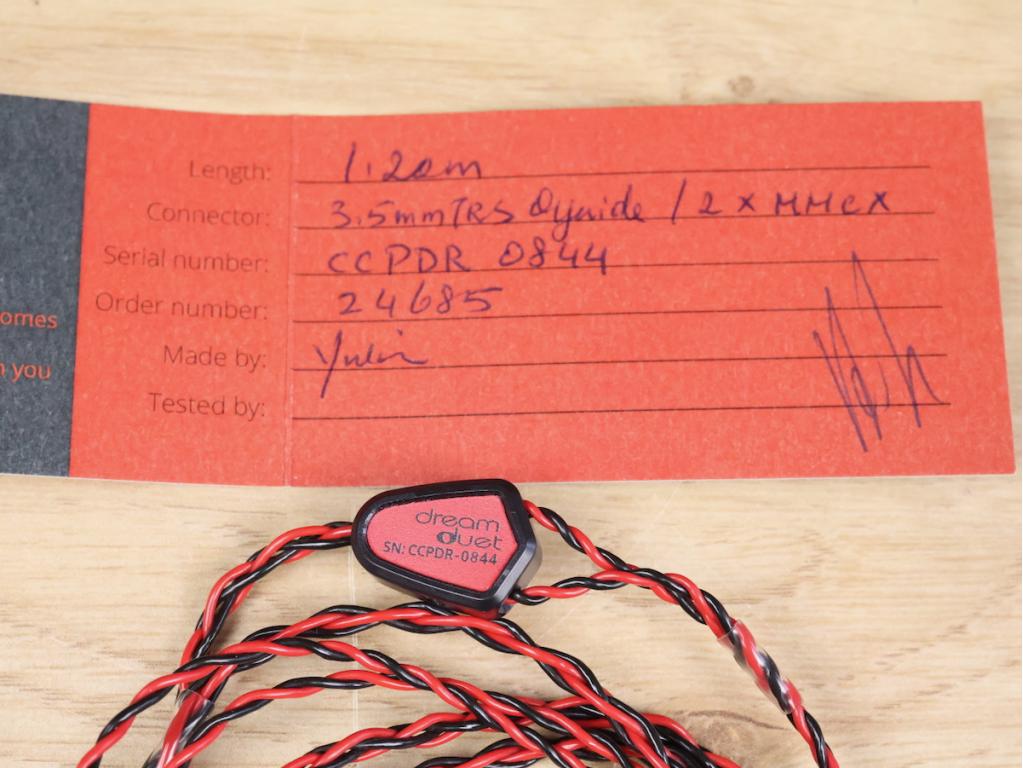 Length: 1.20m
Connector: 3.5mm TRS / 2 x MMCX
Serial number: CCPDR 0844
Order number: 24685
Made by: Yulia
Tested by:
omes
you
dream
duet
SN: CCPDR-0844